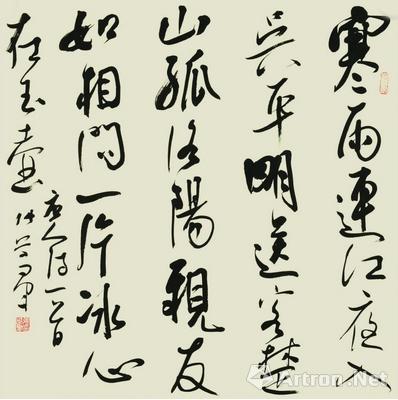 寒雨連江夜入
吳平明送客楚
山孤洛陽親友
如相問一片冰心
在玉壺
唐人詩一首
Artron.Net